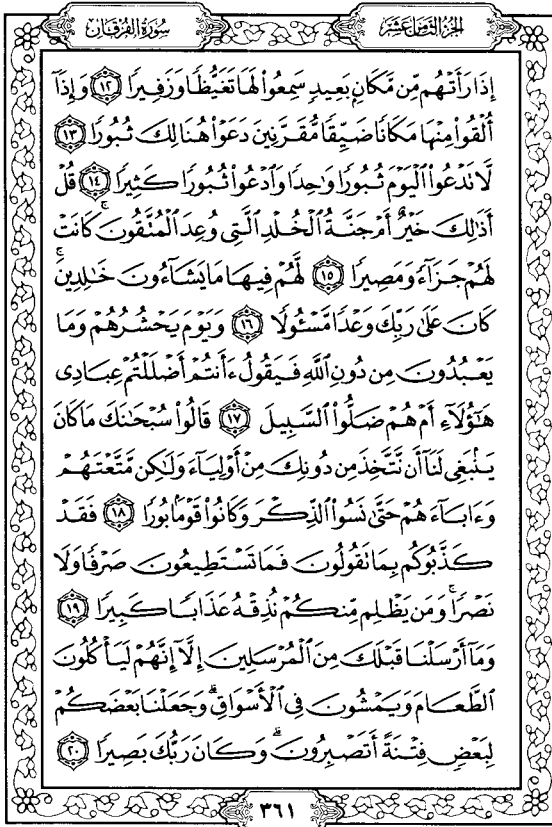 سُورَةُ الفُرْقَان
الجُزْءُ الثَّامِنَ عَشَرَ
إِذَا رَأَتْهُم مِّن مَّكَانٍۭ بَعِيدٍ سَمِعُوا۟ لَهَا تَغَيُّظًا وَزَفِيرًا ١٢ وَإِذَآ
أُلْقُوا۟ مِنْهَا مَكَانًا ضَيِّقًا مُّقَرَّنِينَ دَعَوْا۟ هُنَالِكَ ثُبُورًا ١٣
لَّا تَدْعُوا۟ ٱلْيَوْمَ ثُبُورًا وَٰحِدًا وَٱدْعُوا۟ ثُبُورًا كَثِيرًا ١٤ قُلْ
أَذَٰلِكَ خَيْرٌ أَمْ جَنَّةُ ٱلْخُلْدِ ٱلَّتِى وُعِدَ ٱلْمُتَّقُونَ ۚ كَانَتْ
لَهُمْ جَزَآءً وَمَصِيرًا ١٥ لَّهُمْ فِيهَا مَا يَشَآءُونَ خَٰلِدِينَ ۚ
كَانَ عَلَىٰ رَبِّكَ وَعْدًا مَّسْـُٔولًا ١٦ وَيَوْمَ يَحْشُرُهُمْ وَمَا
يَعْبُدُونَ مِن دُونِ ٱللَّهِ فَيَقُولُ ءَأَنتُمْ أَضْلَلْتُمْ عِبَادِى
هَٰٓؤُلَآءِ أَمْ هُمْ ضَلُّوا۟ ٱلسَّبِيلَ ١٧ قَالُوا۟ سُبْحَٰنَكَ مَا كَانَ
يَنۢبَغِى لَنَآ أَن نَّتَّخِذَ مِن دُونِكَ مِنْ أَوْلِيَآءَ وَلَٰكِن مَّتَّعْتَهُمْ
وَءَابَآءَهُمْ حَتَّىٰ نَسُوا۟ ٱلذِّكْرَ وَكَانُوا۟ قَوْمًۢا بُورًا ١٨ فَقَدْ
كَذَّبُوكُم بِمَا تَقُولُونَ فَمَا تَسْتَطِيعُونَ صَرْفًا وَلَا
نَصْرًا ۚ وَمَن يَظْلِم مِّنكُمْ نُذِقْهُ عَذَابًا كَبِيرًا ١٩
وَمَآ أَرْسَلْنَا قَبْلَكَ مِنَ ٱلْمُرْسَلِينَ إِلَّآ إِنَّهُمْ لَيَأْكُلُونَ
ٱلطَّعَامَ وَيَمْشُونَ فِى ٱلْأَسْوَاقِ ۗ وَجَعَلْنَا بَعْضَكُمْ
لِبَعْضٍ فِتْنَةً أَتَصْبِرُونَ ۗ وَكَانَ رَبُّكَ بَصِيرًا ٢٠
٣٦١